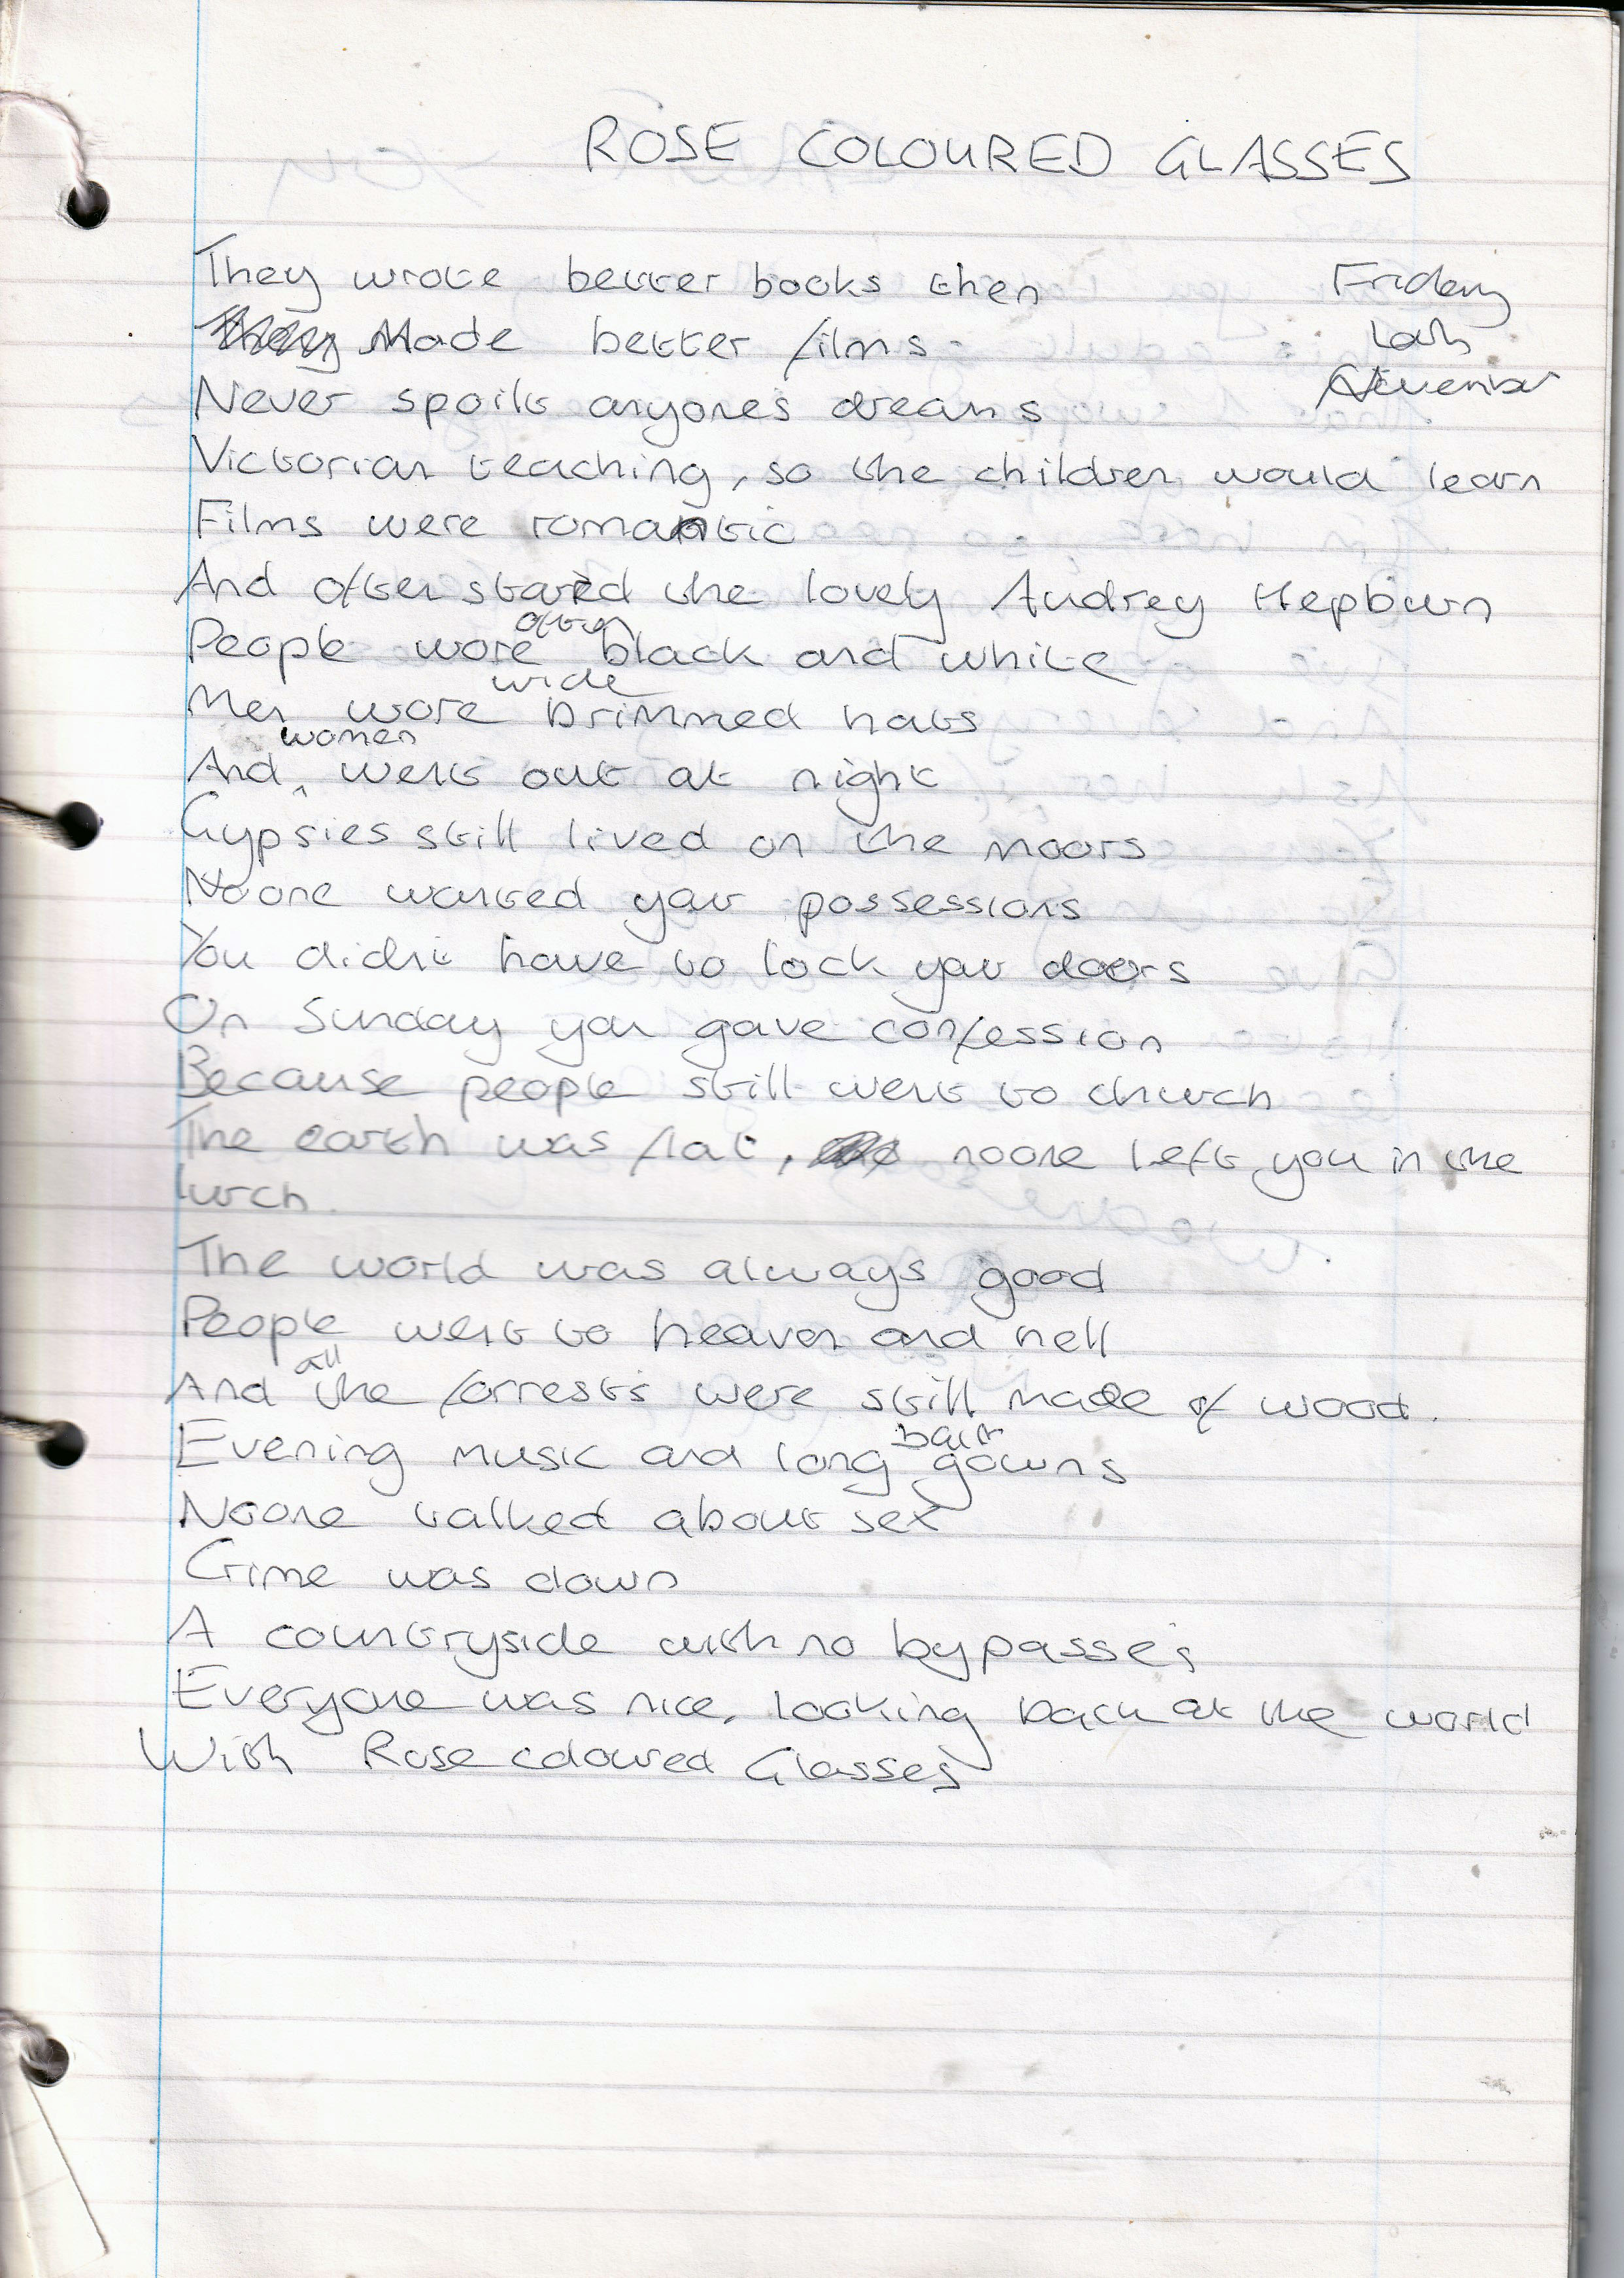 ROSE COLOURED GLASSES
They wrote better books then
Friday
Made better films
Never spoilt anyone's dreams
November
Victorian teaching, so the children would learn
Films were romantic
And often stared the lovely Audrey Hepburn
People wore often black and white
Men wore wide brimmed hats
And women went out at night
Gypsies still lived on the moors
Noone wanted your possessions
You didn't have to lock your doors
On Sunday you gave confession
Because people still went to church
The earth was flat, noone left you in the
lurch.
The world was always good
People went to heaven and hell
And all the forrests were still made of wood.
Evening music and long ball gowns
Noone talked about sex
Crime was down
A countryside with no bypasses
Everyone was nice, looking back at the world
With Rose coloured Glasses